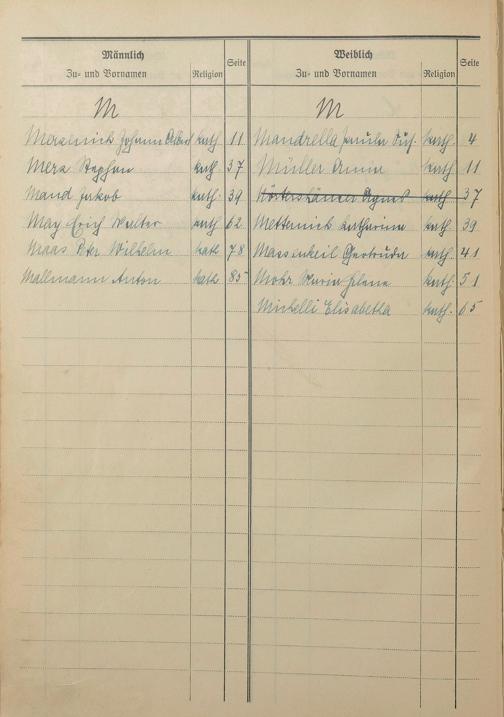 Männlich
Zu- und Vornamen Religion Seite
M
Johann kath 11
Merz Stephan kath. 37
Mand Jakob kath. 39
May Erich Walter kath 62
Maas Ptr Wilhelm kath 78
Mallmann Anton kath 85
Weiblich
Zu- und Vornamen Religion Seite
M
Mandrella kath. 4
Müller Anna kath. 11
Agnes kath 37
Metternich Katharina kath. 39
Massenkeil Gertrude kath. 41
Mohr Maria Helene kath. 51
Michelli Elisabetha kath. 65